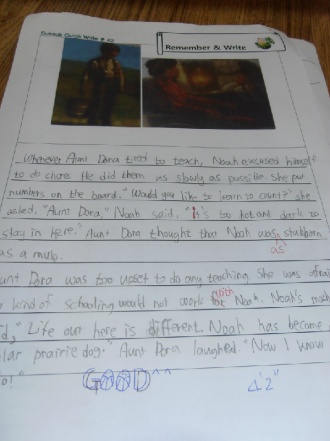 Quick Write # 
Remember & Write
Whenever Aunt Dora tried to teach, Noah excused himself
to do chores. He did them as slowly as possible. She put
numbers on the board. "Would you like to learn to count?" she
asked. "Aunt Dora," Noah said, "It's too hot and dark to
stay in here." Aunt Dora thought that Noah was stubborn
as
as a mule.
unt Dora was too upset to do any teaching. She was afrai
r kind of schooling would not work for Noah. Noah's
with
id, "Life out here is different. Noah has become
ular prairie dog." Aunt Dora laughed. "Now I know
GOOD^^
4'2"